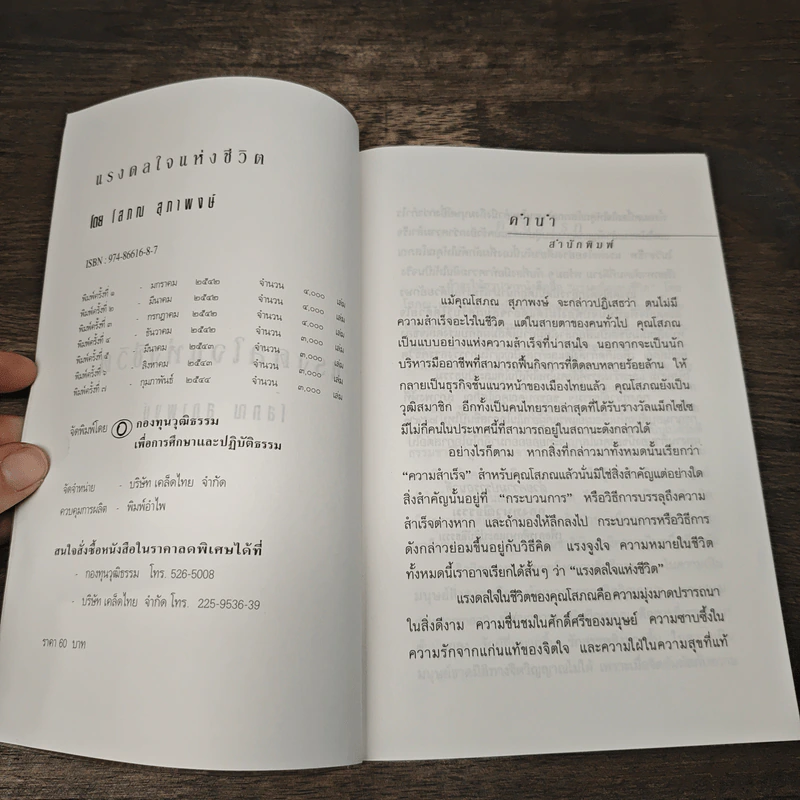 แรงดลใจแห่งชีวิต
โดย โสภณ สุภาพงษ์
ISBN : 974-86616-8-7
พิมพ์ครั้งที่ ๑ - มกราคม ๒๕๔๒ จำนวน ๔,๐๐๐ เล่ม
พิมพ์ครั้งที่ ๒ - มีนาคม ๒๕๔๒ จำนวน ๔,๐๐๐ เล่ม
พิมพ์ครั้งที่ ๓ - กรกฎาคม ๒๕๔๒ จำนวน ๔,๐๐๐ เล่ม
พิมพ์ครั้งที่ ๔ - ธันวาคม ๒๕๔๒ จำนวน ๓,๐๐๐ เล่ม
พิมพ์ครั้งที่ ๕ - มีนาคม ๒๕๔๓ จำนวน ๓,๐๐๐ เล่ม
พิมพ์ครั้งที่ ๖ - สิงหาคม ๒๕๔๓ จำนวน ๓,๐๐๐ เล่ม
พิมพ์ครั้งที่ ๘ - กุมภาพันธ์ ๒๕๔๔ จำนวน ๓,๐๐๐ เล่ม
จัดพิมพ์โดย กองทุนวุฒิธรรม
เพื่อการศึกษาและปฏิบัติธรรม
จัดจำหน่าย - บริษัท เคล็ดไทย จำกัด
ควบคุมการผลิต - พิมพ์อำไพ
สนใจสั่งซื้อหนังสือในราคาลดพิเศษได้ที่
- กองทุนวุฒิธรรม โทร. 526-5008
- บริษัท เคล็ดไทย จำกัด โทร. 225-9536-39
ราคา 60 บาท
คำนำ
สำนักพิมพ์
แม้คุณโสภณ สุภาพงษ์ จะกล่าวปฏิเสธว่า ตนไม่มี
ความสำเร็จอะไรในชีวิต แต่ในสายตาของคนทั่วไป คุณโสภณ
เป็นแบบอย่างแห่งความสำเร็จที่น่าสนใจ นอกจากจะเป็นนัก
บริหารมืออาชีพที่สามารถฟื้นกิจการที่ติดลบหลายร้อยล้าน ให้
กลายเป็นธุรกิจชั้นแนวหน้าของเมืองไทยแล้ว คุณโสภณยังเป็น
วุฒิสมาชิก อีกทั้งเป็นคนไทยรายล่าสุดที่ได้รับรางวัลแม็กไซไซ
มีไม่กี่คนในประเทศนี้ที่สามารถอยู่ในสถานะดังกล่าวได้
อย่างไรก็ตาม หากสิ่งที่กล่าวมาทั้งหมดนั้นเรียกว่า
“ความสำเร็จ” สำหรับคุณโสภณแล้วนั่นมิใช่สิ่งสำคัญแต่อย่างใด
สิ่งสำคัญนั้นอยู่ที่ “กระบวนการ” หรือวิธีการบรรลุถึงความ
สำเร็จต่างหาก และถ้ามองให้ลึกลงไป กระบวนการหรือวิธีการ
ดังกล่าวย่อมขึ้นอยู่กับวิธีคิด แรงจูงใจ ความหมายในชีวิต
ทั้งหมดนี้เราอาจเรียกได้สั้นๆ ว่า “แรงดลใจแห่งชีวิต”
แรงดลใจในชีวิตของคุณโสภณคือความมุ่งมาดปรารถนา
ในสิ่งดีงาม ความชื่นชมในศักดิ์ศรีของมนุษย์ ความซาบซึ้งใน
ความรักจากแก่นแท้ของจิตใจ และความใฝ่ในความสุขที่แท้